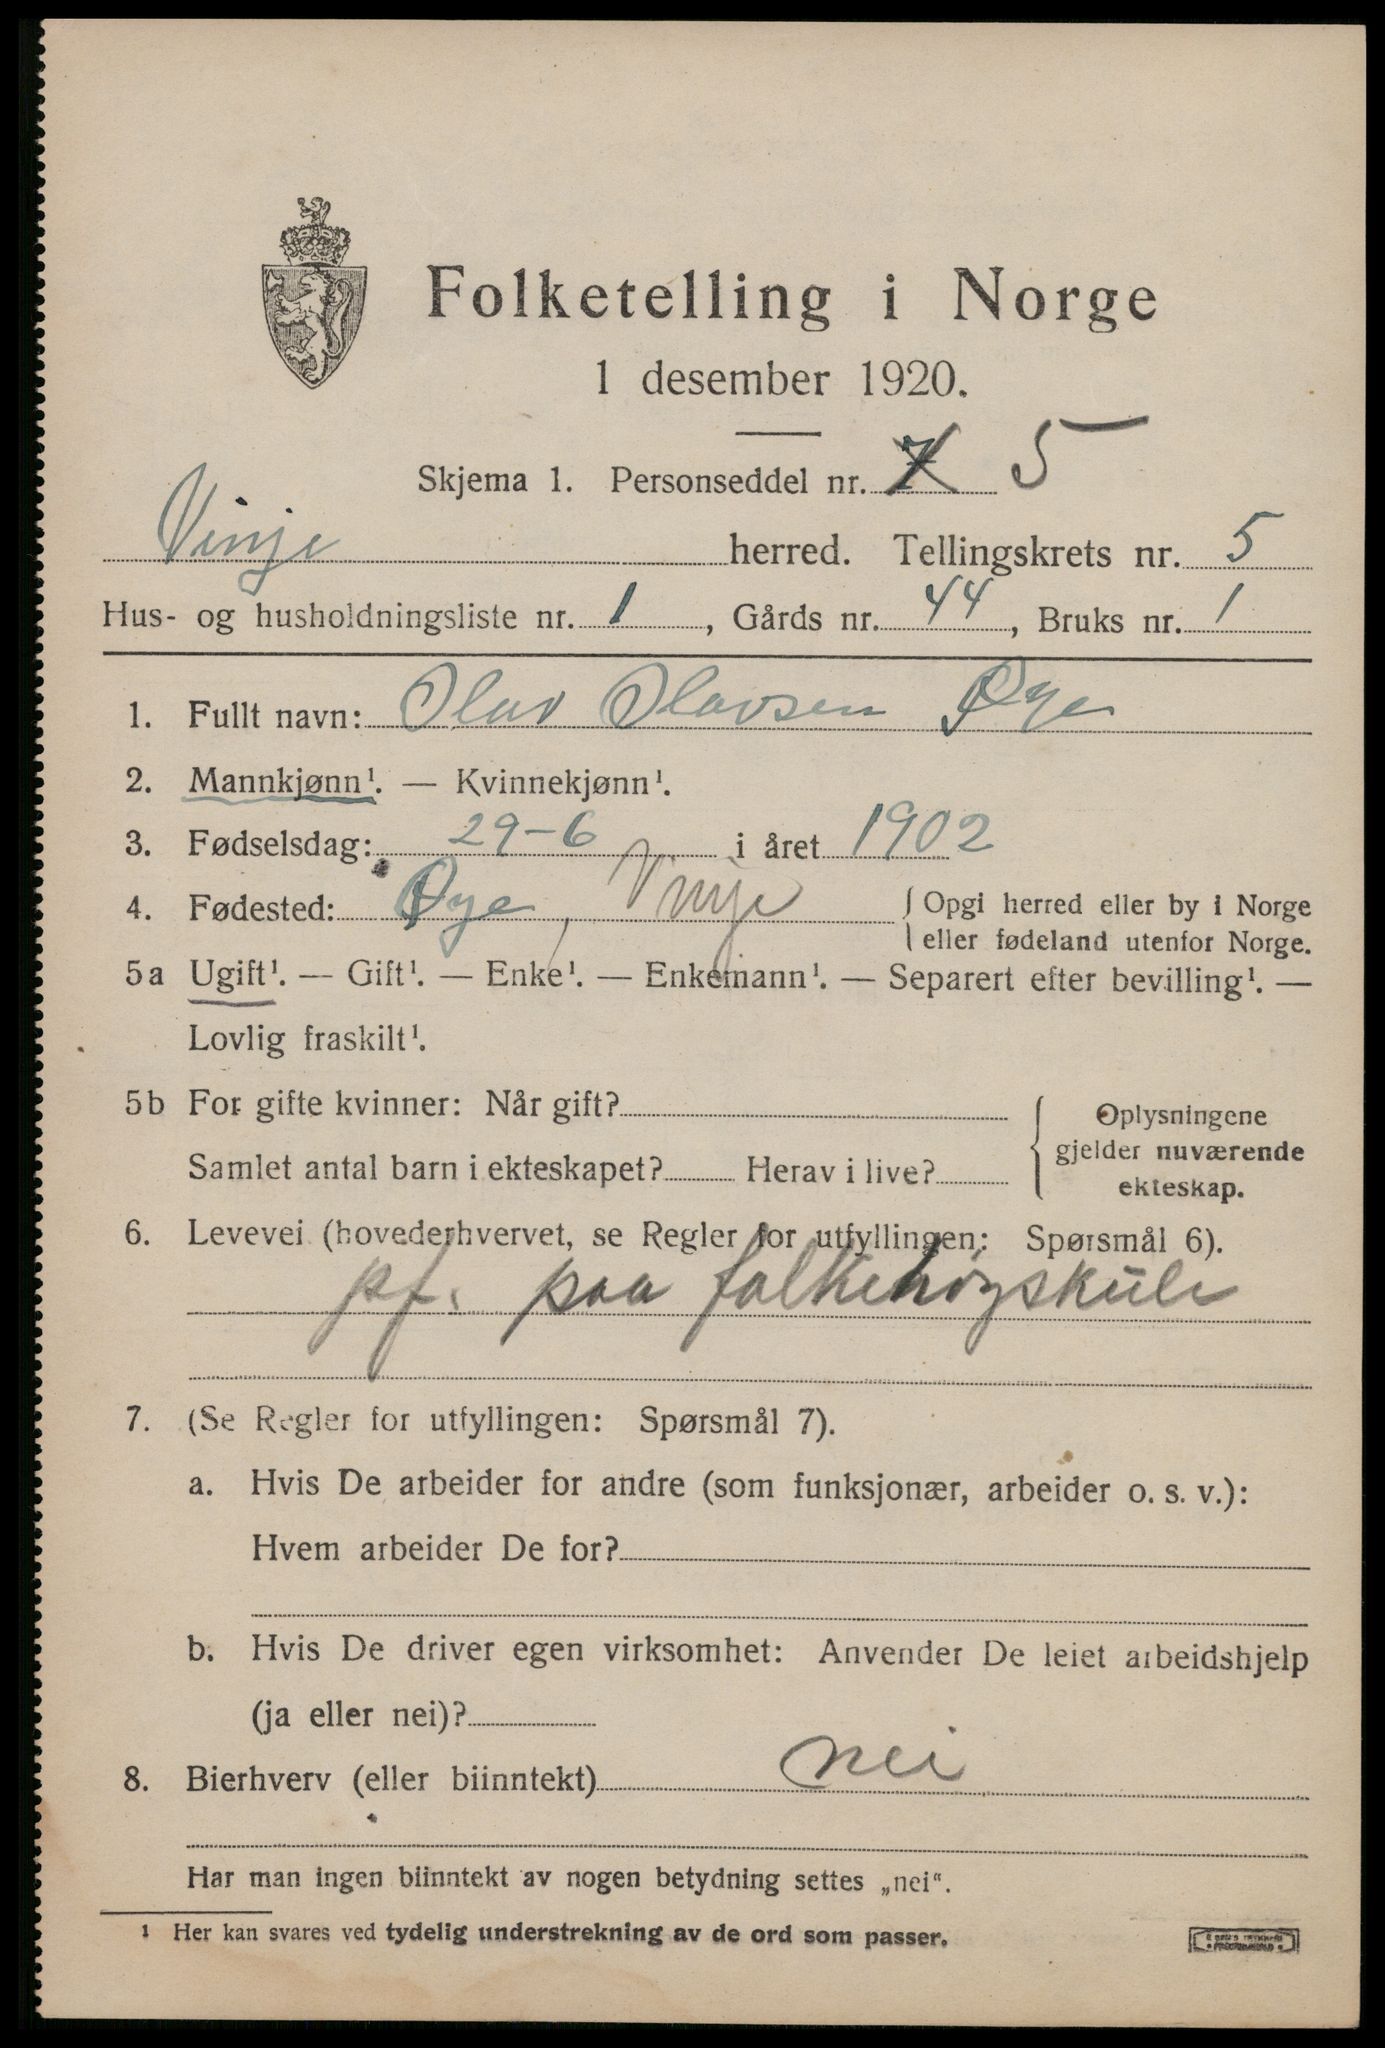 Folketelling i Norge
1 desember 1920.
Skjema 1. Personseddel nr. 7 5
Vinje herred. Tellingskrets nr. 5
Hus- og husholdningsliste nr. 1, Gårds nr. 44, Bruks nr. 1
1. Fullt navn: Olav Olavsen Øye
2. Mannkjønn¹. — Kvinnekjønn¹.
3. Fødselsdag: 29-6 i året 1902
4. Fødested: Øye, Vinje { Opgi herred eller by i Norge
eller fødeland utenfor Norge.
5a Ugift¹. — Gift¹. — Enke¹. — Enkemann¹. — Separert efter bevilling¹. —
Lovlig fraskilt¹.
5b For gifte kvinner: Når gift? { Oplysningene
gjelder nuværende
Samlet antal barn i ekteskapet? Herav i live? ekteskap.
6. Levevei (hovederhvervet, se Regler for utfyllingen: Spørsmål 6).
pf. paa folkehøgskule
7. (Se Regler for utfyllingen: Spørsmål 7).
a. Hvis De arbeider for andre (som funksjonær, arbeider o. s. v.):
Hvem arbeider De for?
b. Hvis De driver egen virksomhet: Anvender De leiet arbeidshjelp
(ja eller nei)?
8. Bierhverv (eller biinntekt) nei
Har man ingen biinntekt av nogen betydning settes „nei“.
¹ Her kan svares ved tydelig understrekning av de ord som passer.